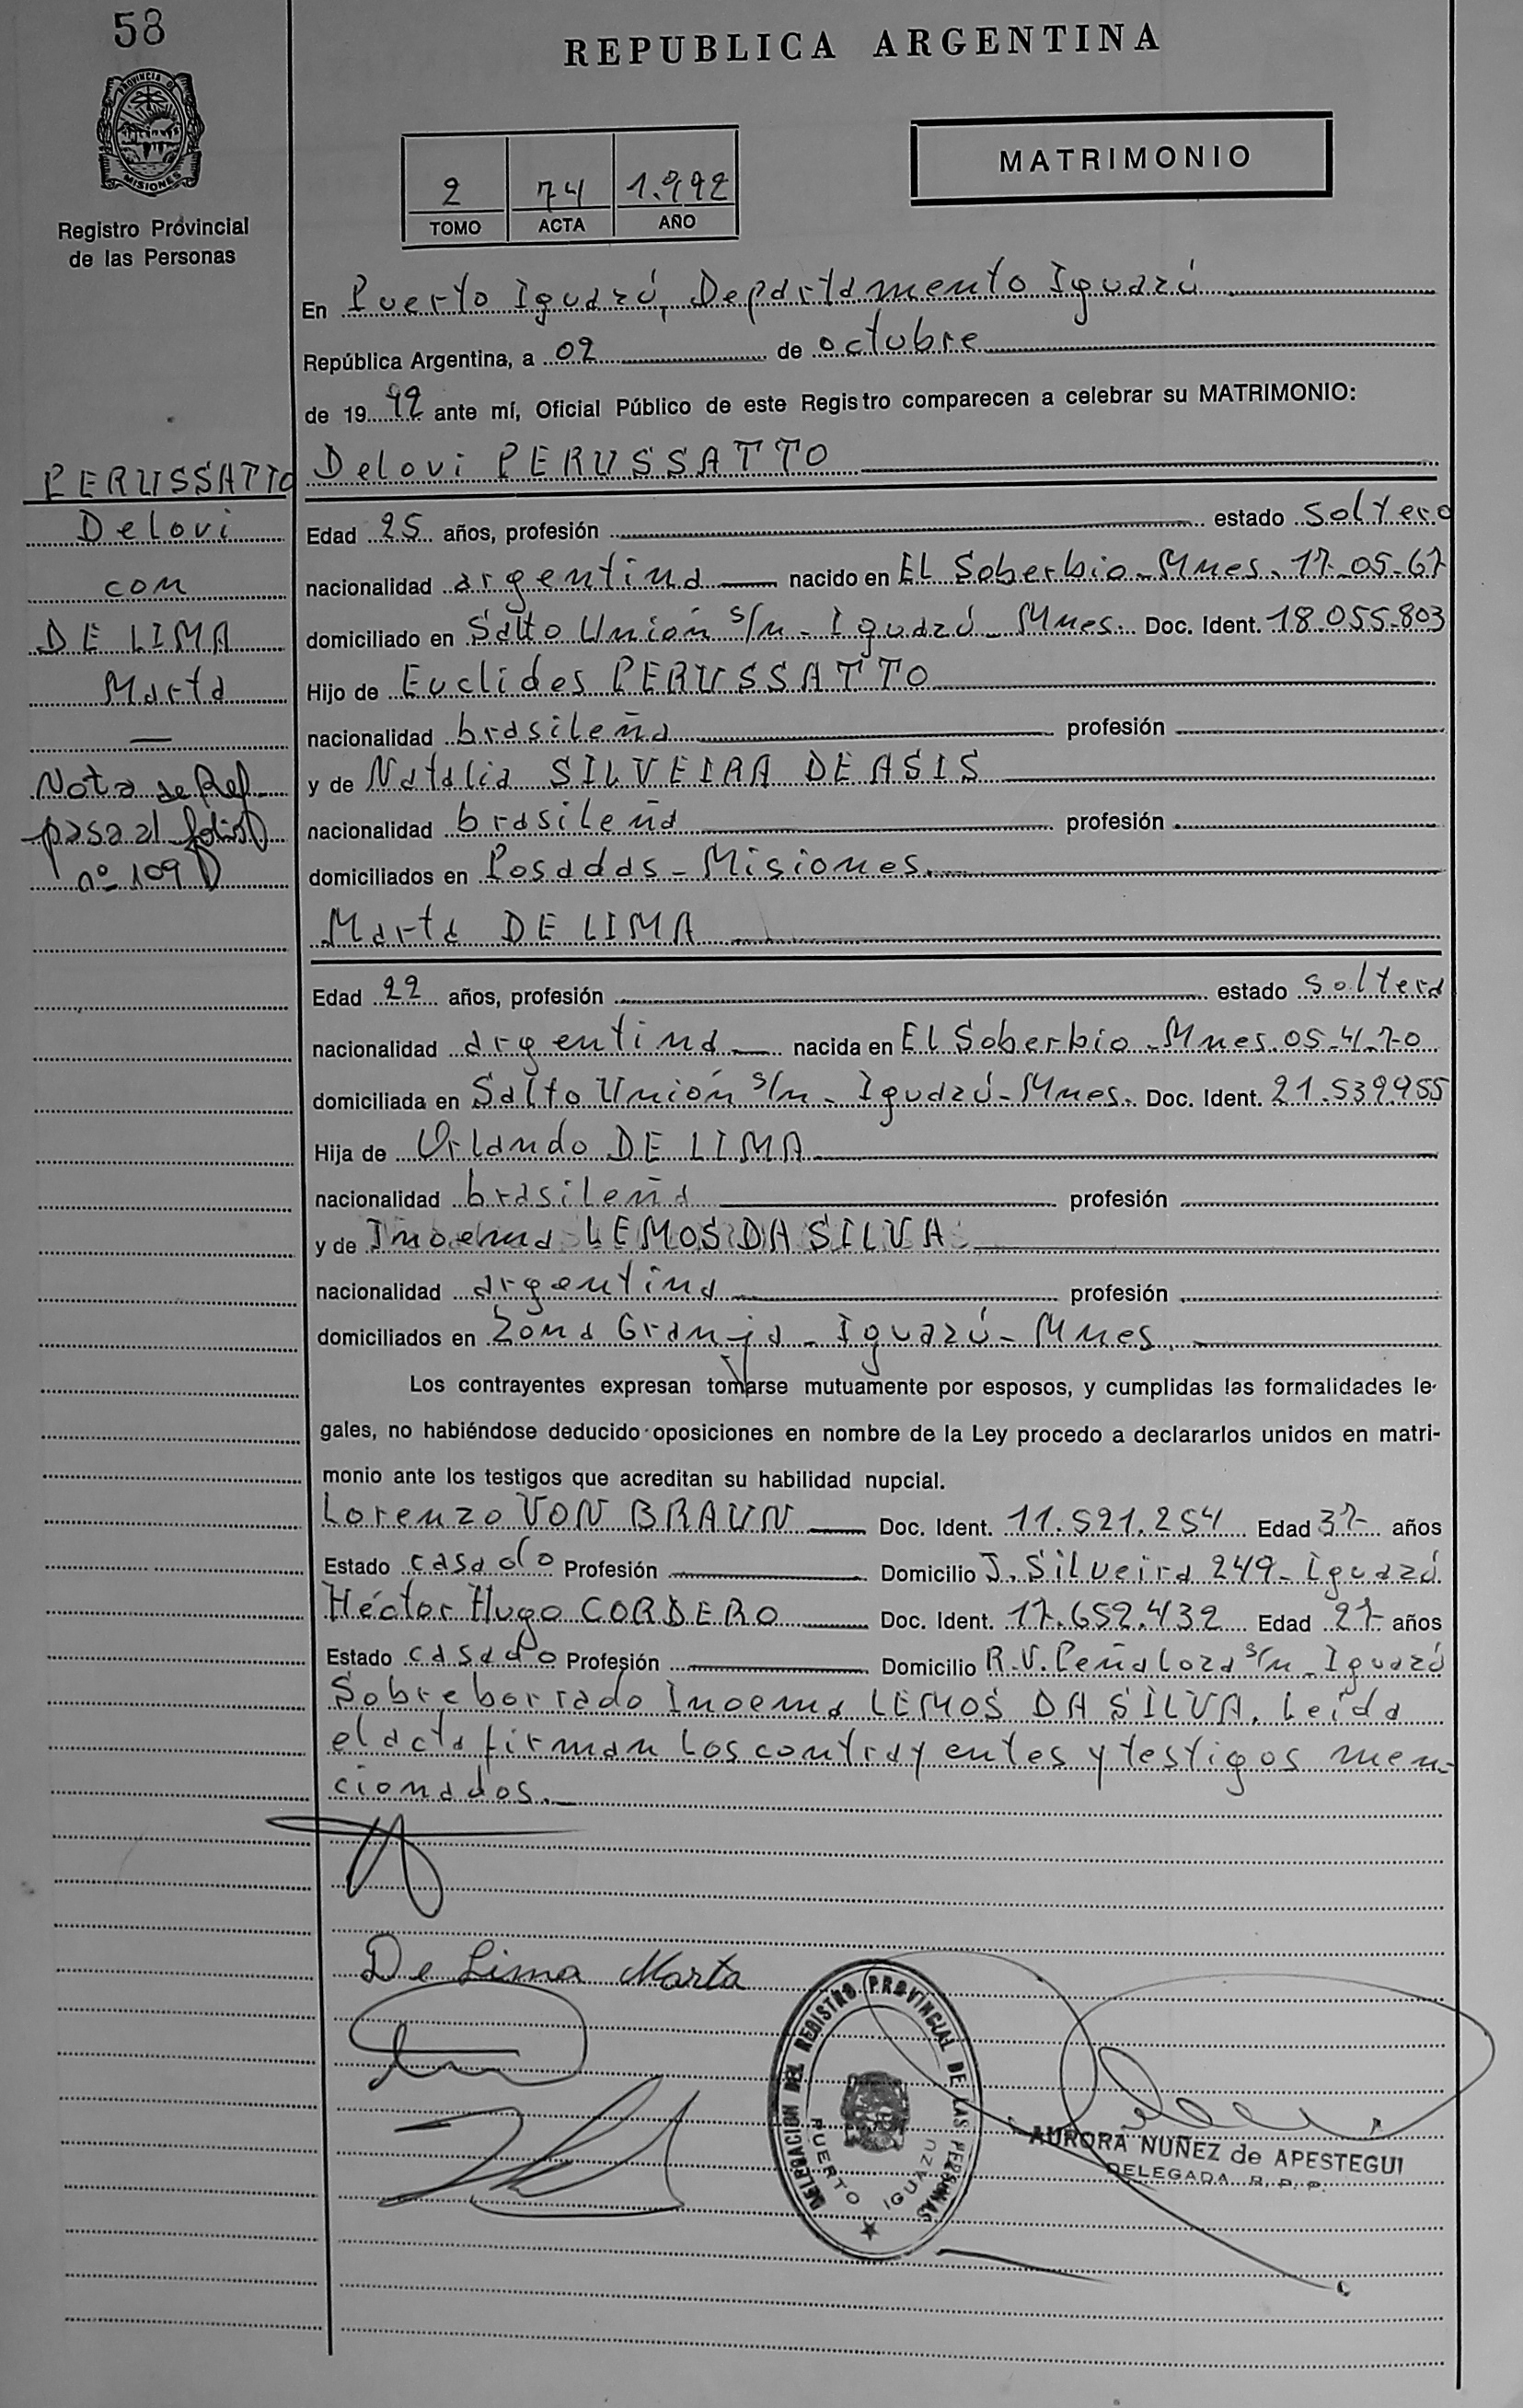 58
REPUBLICA ARGENTINA
PROVINCIA DE
MISIONES
Registro Provincial
de las Personas
MATRIMONIO
2 74 1.992
TOMO ACTA AÑO
En Puerto Iguazú, Departamento Iguazú
República Argentina, a 02 de octubre
de 19 92 ante mí, Oficial Público de este Registro comparecen a celebrar su MATRIMONIO:
Delovi PERUSSATTO
Edad 25 años, profesión estado soltero
nacionalidad argentina nacido en El Soberbio - Mnes. 17-05-67
domiciliado en Salto Unión s/n - Iguazú - Mnes. Doc. Ident. 18.055.803
Hijo de Euclides PERUSSATTO
nacionalidad brasileña profesión
y de Natalia SILVEIRA DE ASIS
nacionalidad brasileña profesión
domiciliados en Posadas - Misiones.
Marta DE LIMA
Edad 22 años, profesión estado soltera
nacionalidad argentina nacida en El Soberbio - Mnes. 05-4-70
domiciliada en Salto Unión s/n - Iguazú - Mnes. Doc. Ident. 21.539.955
Hija de Orlando DE LIMA
nacionalidad brasileña profesión
y de Inoema LEMOS DA SILVA
nacionalidad argentina profesión
domiciliados en Zona Granja - Iguazú - Mnes.
Los contrayentes expresan tomarse mutuamente por esposos, y cumplidas las formalidades le-
gales, no habiéndose deducido oposiciones en nombre de la Ley procedo a declararlos unidos en matri-
monio ante los testigos que acreditan su habilidad nupcial.
Lorenzo VON BRAUN Doc. Ident. 11.521.254 Edad 37 años
Estado casado Profesión Domicilio J. Silveira 249 - Iguazú
Héctor Hugo CORDERO Doc. Ident. 17.652.432 Edad 27 años
Estado casado Profesión Domicilio R.V. Peñaloza s/n - Iguazú
Sobreborrado Inoema LEMOS DA SILVA. Leída
el acta firman los contrayentes y testigos men-
cionados.
PERUSSATTO
Delovi
con
DE LIMA
Marta
Nota de Ref.
pasa al folio
nº 109
De Lima Marta
DELEGACION DEL REGISTRO PROVINCIAL DE LAS PERSONAS
PUERTO IGUAZU
AURORA NUÑEZ de APESTEGUI
DELEGADA R. P. P.